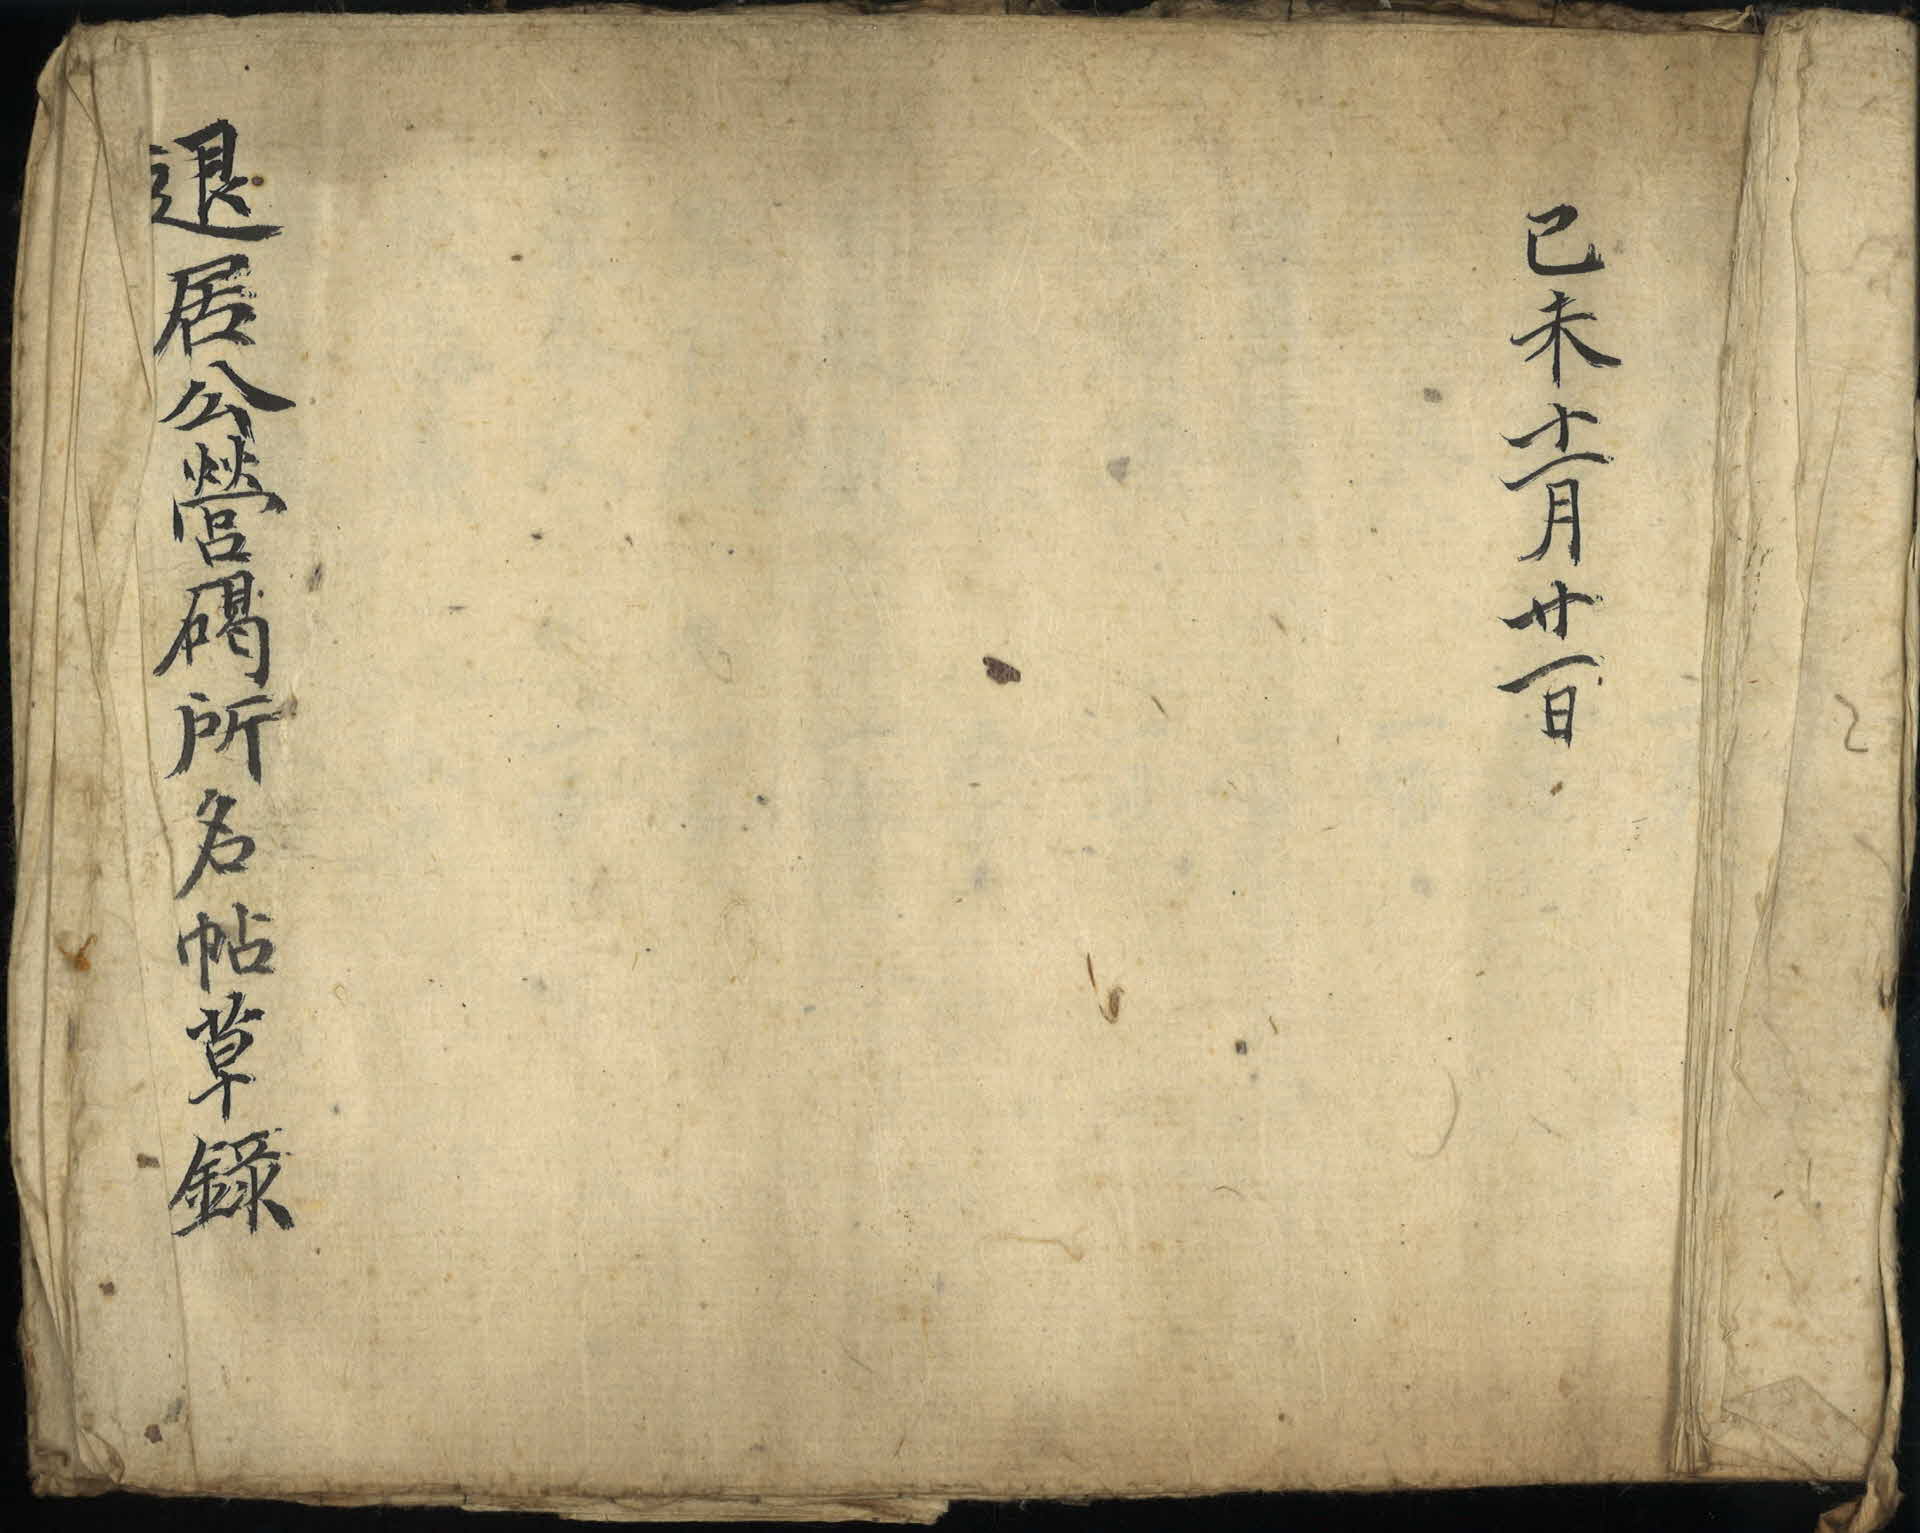 己未十二月廿一日
退居公營碣所名帖草錄